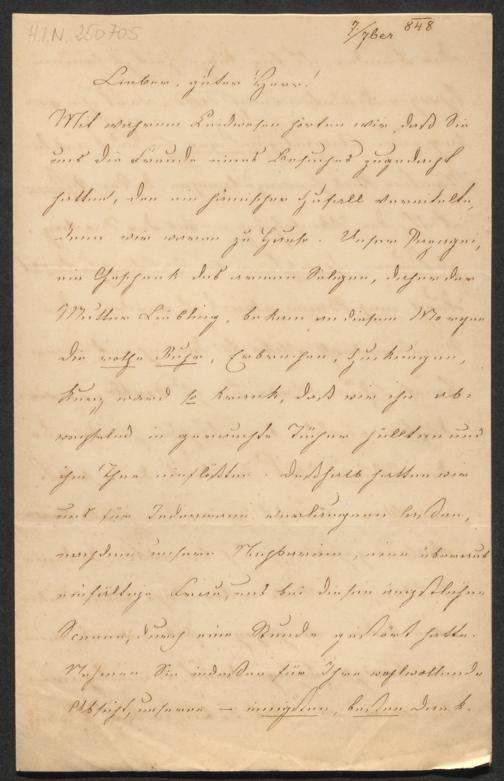 H.I.N. 250705
7/7ber 848
Lieber, guter Herr!
Mit wahrem Leidwesen hörten wir, daß Sie
uns die Freude eines Besuches zugedacht
hatten, den ein hämischer Zufall vereitelte,
denn wir waren zu Hause. Unser
ein Geschenk des armen Seligen, daher der
Mutter Liebling, bekam an diesem Morgen
die rothe Ruhr, Erbrechen, Zuckungen,
kurz ward so krank, daß wir ihn ab-
wechselnd in gewärmte Tücher hüllten und
ihm Thee einflößten. Deßhalb hatten wir
uns für Jedermann verläugnen lassen,
nachdem unsere Nachbarinn, eine überaus
einfältige Frau, uns bei diesen ängstlichen
Scenen, durch eine Stunde gestört hatte.
Nehmen Sie indessen für Ihre wohlwollende
Absicht, unseren – innigsten, besten Dank.